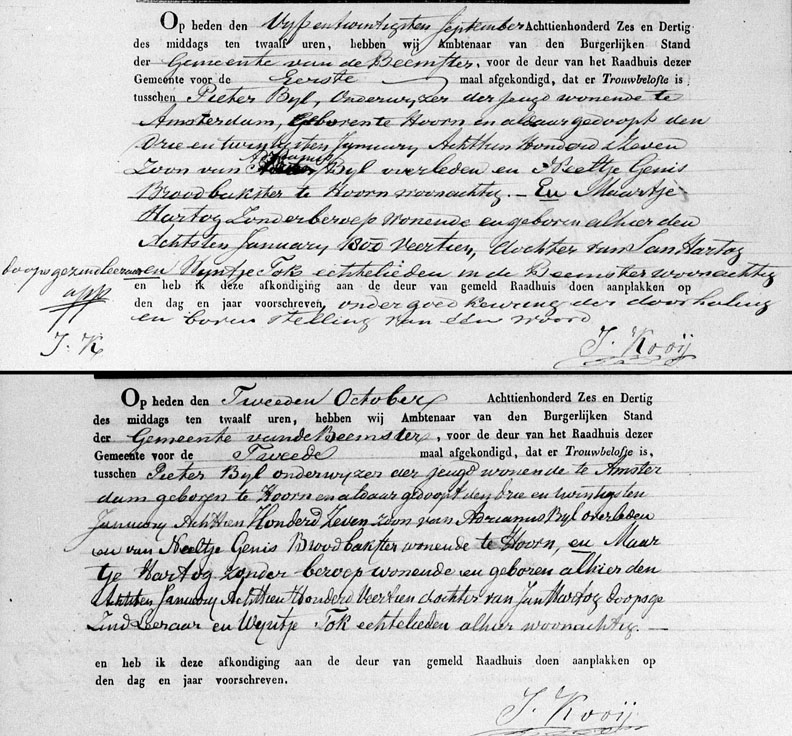 Op heden den Vyf en twintigsten September Achttienhonderd Zes en Dertig
des middags ten twaalf uren, hebben wij Ambtenaar van den Burgerlijken Stand
der Gemeente van de Beemster, voor de deur van het Raadhuis dezer
Gemeente voor de Eerste maal afgekondigd, dat er Trouwbelofte is
tusschen Pieter Byl, Onderwyzer der jeugd wonende te
Amsterdam, geboren te Hoorn en aldaar gedoopt den
drie en twintigsten January Achttien Honderd Zeven
Zoon van Adrianus Byl overleden en Neeltje Genis
Broodbakster te Hoorn woonachtig. — En Maartje
Hartog Zonder beroep Wonende en geboren alhier den
Achtsten January 1800 Veertien, dochter van Jan Hartog
doopsgezind leeraar en Wyntje Tok echtelieden in de Beemster woonachtig
app
en heb ik deze afkondiging aan de deur van gemeld Raadhuis doen aanplakken op
den dag en jaar voorschreven, onder goedkeuring der doorhaling
en boven stelling van één woord
J. K
J. Kooij
Op heden den Tweeden October Achttienhonderd Zes en Dertig
des middags ten twaalf uren, hebben wij Ambtenaar van den Burgerlijken Stand
der Gemeente van de Beemster, voor de deur van het Raadhuis dezer
Gemeente voor de Tweede maal afgekondigd, dat er Trouwbelofte is,
tusschen Pieter Byl onderwyzer der jeugd wonende te Amster
dam geboren te Hoorn en aldaar gedoopt den drie en twintigsten
January Achttien Honderd Zeven zoon van Adrianus Byl overleden
en van Neeltje Genis Broodbakster wonende te Hoorn, en Maar
tje Hartog zonder beroep wonende en geboren alhier den
Achtsten January Achttien Honderd Veertien dochter van Jan Hartog doopsge
Zind Leeraar en Wyntje Tok echtelieden alhier woonachtig. —
en heb ik deze afkondiging aan de deur van gemeld Raadhuis doen aanplakken op
den dag en jaar voorschreven.
J. Kooij